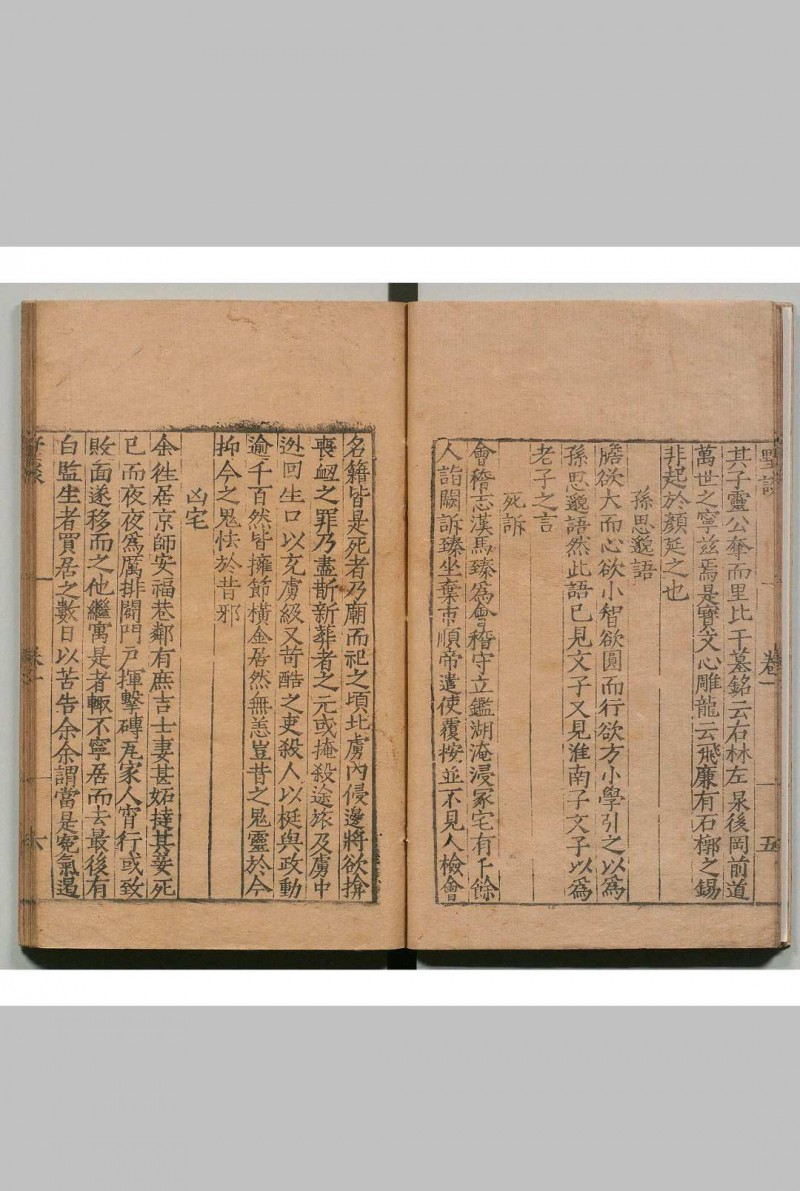 其子靈公奪而里比干墓銘云右林左泉後岡前道
萬世之寧兹焉是寶文心雕龍云飛廉有石槨之錫
非起於顔延之也
孫思邈語
膽欲大而心欲小智欲圓而行欲方小學引之以爲
孫思邈語然此語已見文子又見淮南子文子以爲
老子之言
死訴
會稽志漢馬臻爲會稽守立鑑湖淹浸冢宅有千餘
人詣闕訴臻坐棄市順帝遣使覆按並不見人檢會
卷一
五
名籍皆是死者乃廟而祀之頃北虜內侵邊將欲揜
喪衂之罪乃盡斲新葬者之元或掩殺途旅及虜中
迯回生口以充虜級又苛酷之吏殺人以梃與政動
逾千百然皆擁節橫金居然無恙豈昔之鬼靈於今
抑今之鬼怯於昔邪
凶宅
余徃居京師安福巷鄰有庶吉士妻甚妬撻其妾死
已而夜夜爲厲排闢門戶揮擊磚瓦家人宵行或致
敗面遂移而之他繼寓是者輙不寧居而去最後有
白監生者買居之數日以苦告余余謂當是寃氣遏
六